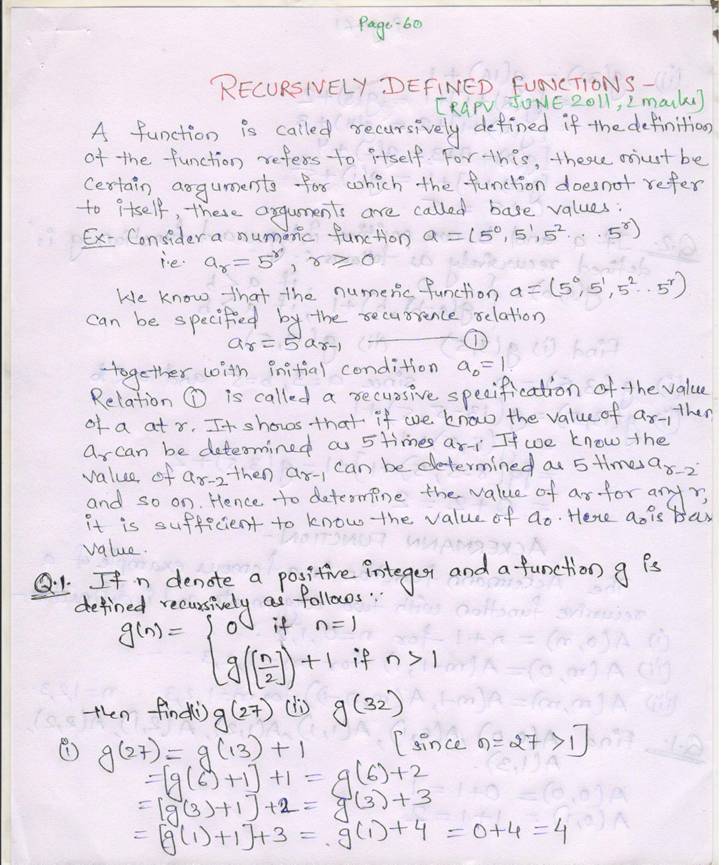 Page-60
RECURSIVELY DEFINED FUNCTIONS -
[RGPV JUNE 2011, 2 marks]
A function is called recursively defined if the definition
of the function refers to itself. For this, there must be
certain arguments for which the function doesnot refer
to itself, these arguments are called base values.
Ex- Consider a numeric function a = (5⁰, 5¹, 5² . . . 5ʳ)
i.e. aᵣ = 5ʳ, r ≥ 0
We know that the numeric function a = (5⁰, 5¹, 5² . . 5ʳ)
can be specified by the recurrence relation
aᵣ = 5 aᵣ₋₁ ——— ①
together with initial condition a₀ = 1
Relation ① is called a recursive specification of the value
of a at r. It shows that if we know the value of aᵣ₋₁ then
aᵣ can be determined as 5 times aᵣ₋₁. If we know the
value of aᵣ₋₂ then aᵣ₋₁ can be determined as 5 times aᵣ₋₂
and so on. Hence to determine the value of aᵣ for any r,
it is sufficient to know the value of a₀. Here a₀ is base
value.
Q.1. If n denote a positive integer and a function g is
defined recursively as follows:
g(n) = { 0 if n=1
g([n/2]) + 1 if n > 1
then find (i) g(27) (ii) g(32)
(i) g(27) = g(13) + 1 [since n=27 >1]
= [g(6)+1] +1 = g(6)+2
= [g(3)+1] +2 = g(3)+3
= [g(1)+1]+3 = g(1)+4 = 0+4 = 4